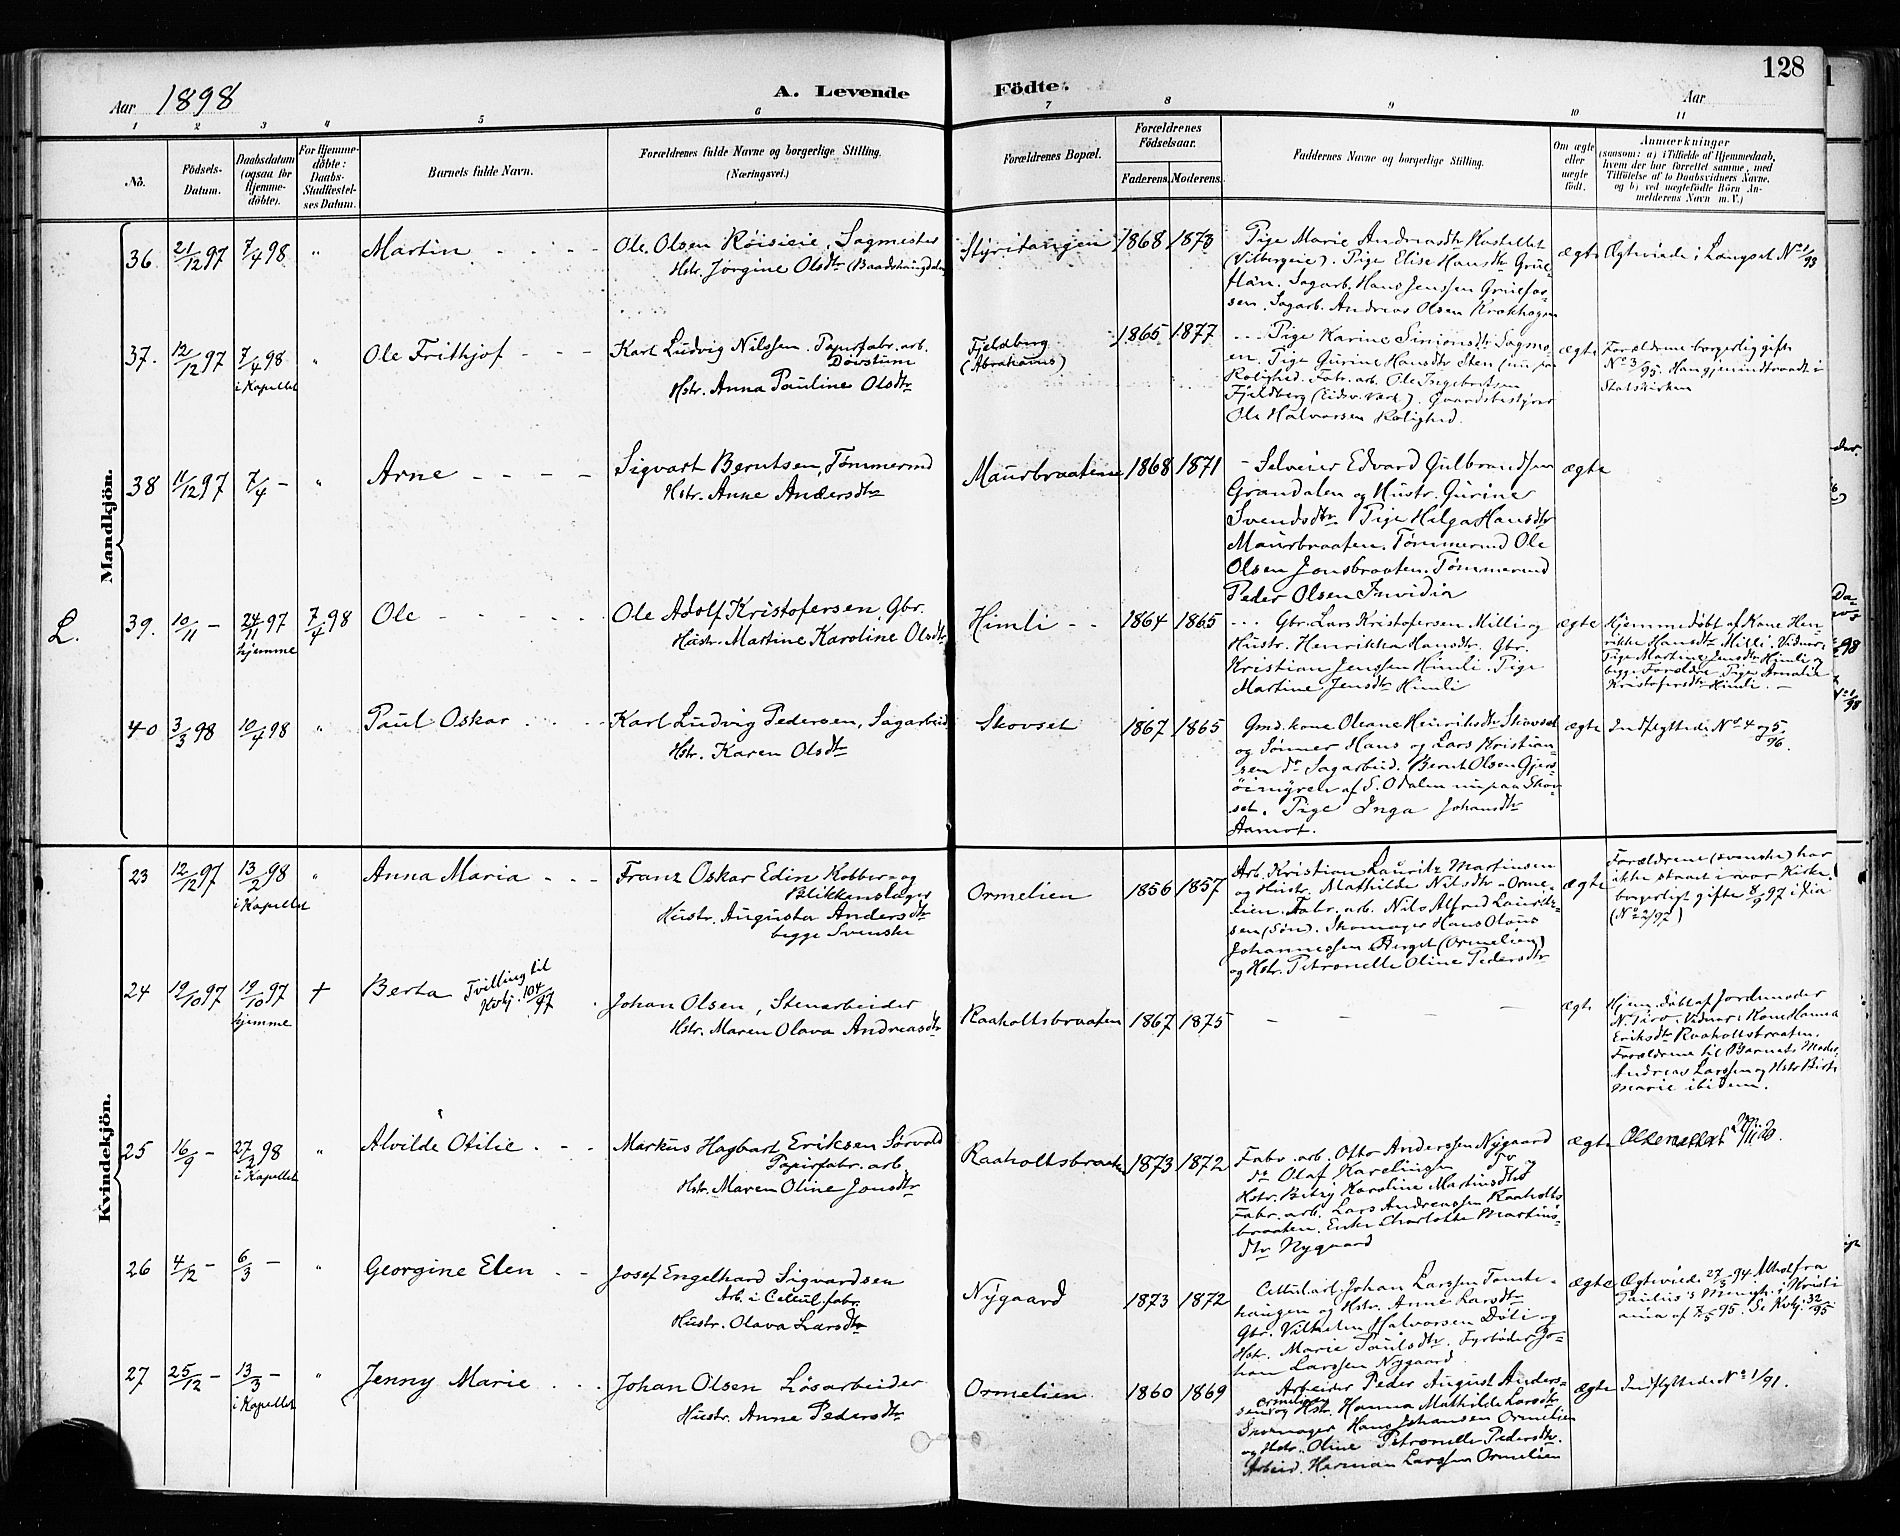 128
Aar 1898
A. Levende Födte.
Aar
1 2 3 4 5 6 7 8 9 10 11
No.
Födsels-
Datum.
Daabsdatum
(ogsaa for
Hjemme-
döbte).
For Hjemme-
döbte:
Daabs-
Stadfæstel-
ses Datum.
Barnets fulde Navn.
Forældrenes fulde Navne og borgerlige Stilling.
(Næringsvei.)
Forældrenes Bopæl.
Forældrenes
Födselsaar.
Faderens. Moderens.
Faddernes Navne og borgerlige Stilling.
Om ægte
eller
uægte
födt.
Anmærkninger
(saasom: a) i Tilfælde af Hjemmedaab,
hvem der har forrettet samme, med
Tilföielse af to Daabsvidners Navne,
og b) ved uægtefödte Börn An-
melderens Navn m. V.)
Mandkjön.
36 21/12 97 7/4 98 " Martin
Ole Olsen Röisieie, Sagmester
Hstr. Jørgine Olsdtr (Baadshaugdalen)
Styritangen 1868 1873
Pige Marie Andreasdtr Kastellet
(Vilbergeie). Pige Elise Hansdtr Grue-
. Sagarb. Hans Jenssen Gruefos-
sen. Sagarb. Andreas Olsen Krokhagen
ægte
Ægteviede i Langset No 1/93
37. 12/12 97 7/4 98 i Kapellet " Ole Frithjof
Karl Ludvig Nilssen. Papirfabr. arb.
Døvstum
Hstr. Anna Pauline Olsdtr
Fjeldberg
(Abrahams)
1865 1877
Pige Karine Simonsdtr Sagmo-
en. Pige Gurine Hansdtr Sten (nu paa
Rolighed. Fabr. arb. Ole Ingebretsen
Fjeldberg (Eidsv. Værk). Gaardsbestyrer
Ole Halvorsen Rolighed.
ægte
Forældrene borgerlig gifte
No 3/95. Han gjenindtraadt i
Statskirken
38 11/12 97 7/4 - " Arne
Sigvart Berntsen, Tømmermd
Hstr. Anne Andersdtr
Maurbraatene 1868 1871
- Selveier Edvard Gulbrandsen
Grandalen og Hustr. Gurine
Svendsdtr Pige Helga Hansdtr
Maurbraaten. Tømmermd Ole
Olsen Jonsbraaten. Tømmermd
Peder Olsen
ægte
L.
39. 10/11 - 24/11 97 hjemme 7/4 98 Ole
Ole Adolf Kristofersen, Gbr.
Hustr. Martine Karoline Olsdtr
Himli 1864 1865
Gbr. Lars Kristofersen Milli og
Hustr. Henrikka Hansdtr. Gbr.
Kristian Jenssen Himli. Pige
Martine Jensdtr Himli
ægte
Hjemmedøbt af Kone Hen-
rikke Hansdtr Milli. Vidner:
Pige Martine Jensdtr Himli og
begge Forældre. Pige Amalie
Kristofersdtr Himli.
40 3/3 98 10/4 98 " Paul Oskar
Karl Ludvig Pedersen, Sagarbeid
Hstr. Karen Olsdtr
Skovset 1867 1865
Gmd. kone Oleane Henriksdtr Skovset
og Sønner Hans og Lars Kristian-
sen do Sagarbeid. Bernt Olsen Gjers-
øimyren af S. Odalen nu paa Skov-
set. Pige Inga Johansdtr
Aamot.
ægte
Indflyttede No 4 og 5/96.
Kvindekjön.
23 12/12 97 13/2 98 i Kapellet " Anna Maria
Franz Oskar Edin Kobber- og
Blikkenslager
Hustr. Augusta Andersdtr
begge Svenske
Ormelien 1856 1857
Arb. Kristian Lauritz Martinsen
og Hustr. Mathilde Nilsdtr Orme-
lien. Fabr. arb. Nils Alfred Laurits-
sen (Søn). Skomager Hans Olaus
Johannessen Berget (Ormelien)
og Hstr. Petronelle Oline Pedersdtr
ægte
Forældrene (svenske) har
ikke staaet i vor Kirke.
borgerligt gifte 8/9 97 i
(No 22/97)
24 19/10 97 19/10 97 hjemme + Berta Tvilling til
Kvkj. 104/97
Johan Olsen, Stenarbeider
Hstr. Maren Olava Andreasdtr
Raaholtsbraaten 1867 1875 - - - -
ægte
Hjem. døbt af Jordemoder
N. Tiro. Vidner: Kone Hanna
Eriksdtr Raaholtsbraaten.
Forældrene til Barnets Moder,
Andreas Larssen og Hstr Berte
Marie ibidem.
25 16/9 - 27/2 98 i Kapellet " Alvilde Otilie
Markus Hagbart Eriksen Sørvold
Papirfabr. arb.
Hstr. Maren Oline Jonsdtr
Raaholtsbraaten 1873 1872
Fabr. arb. Otto Anderssen Nygaard
do Olaf Karelingen do og
Hstr. Betzy Karoline Martinsdtr
Fabr. arb. Lars Andreassen Raaholts-
braaten. Enke Charlotte Martins-
dtr Nygaard
ægte
26 4/12 - 6/3 - " Georgine Elen
Josef Engelhard Sigvardsen
Arb. i Cellul. fabr.
Hustr. Olava Larsdtr
Nygaard 1873 1872
Cellul. arb. Johan Larssen Tomte-
haugen og Hstr. Anne Larsdtr
Gbr. Vilhelm Halvorsen Døli og
Hstr. Marie Paulsdtr. Fyrbøder Jo-
han Larssen Nygaard
ægte
Ægteviede 27/3 94. Attest fra
Paulus's Menigh. i Kristi-
ania af 7/5 95. Se Kvkj. 32/95.
27 25/12 - 13/3 - i Kapellet " Jenny Marie
Johan Olsen Løsarbeider
Hustr. Anne Pedersdtr
Ormelien 1860 1869
Arbeider Peder August Anders-
sen Ormelien og Hstr. Hanna Mathilde Larsdtr
Skomager Hans Johansen Ormelien
og Hstr. Oline Petronelle Pedersdtr.
Arbeid. Herman Larssen Ormelien
ægte
Indflyttede No 1/91.